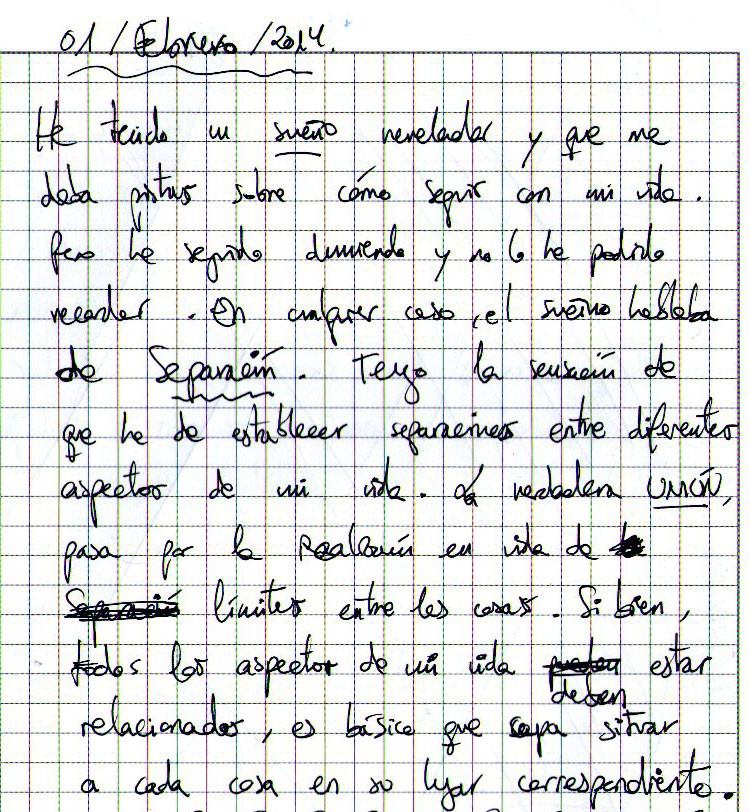 01 / Febrero / 2014.
He tenido un sueño revelador y que me
daba pistas sobre cómo seguir con mi vida.
Pero he seguido durmiendo y no lo he podido
recordar. En cualquier caso, el sueño hablaba
de Separación. Tengo la sensación de
que he de establecer separaciones entre diferentes
aspectos de mi vida. La verdadera UNIÓN,
pasa por la Realización en vida de
límites entre las cosas. Si bien,
todos los aspectos de mi vida estar
deben
relacionados, es básico que sepa situar
a cada cosa en su lugar correspondiente.